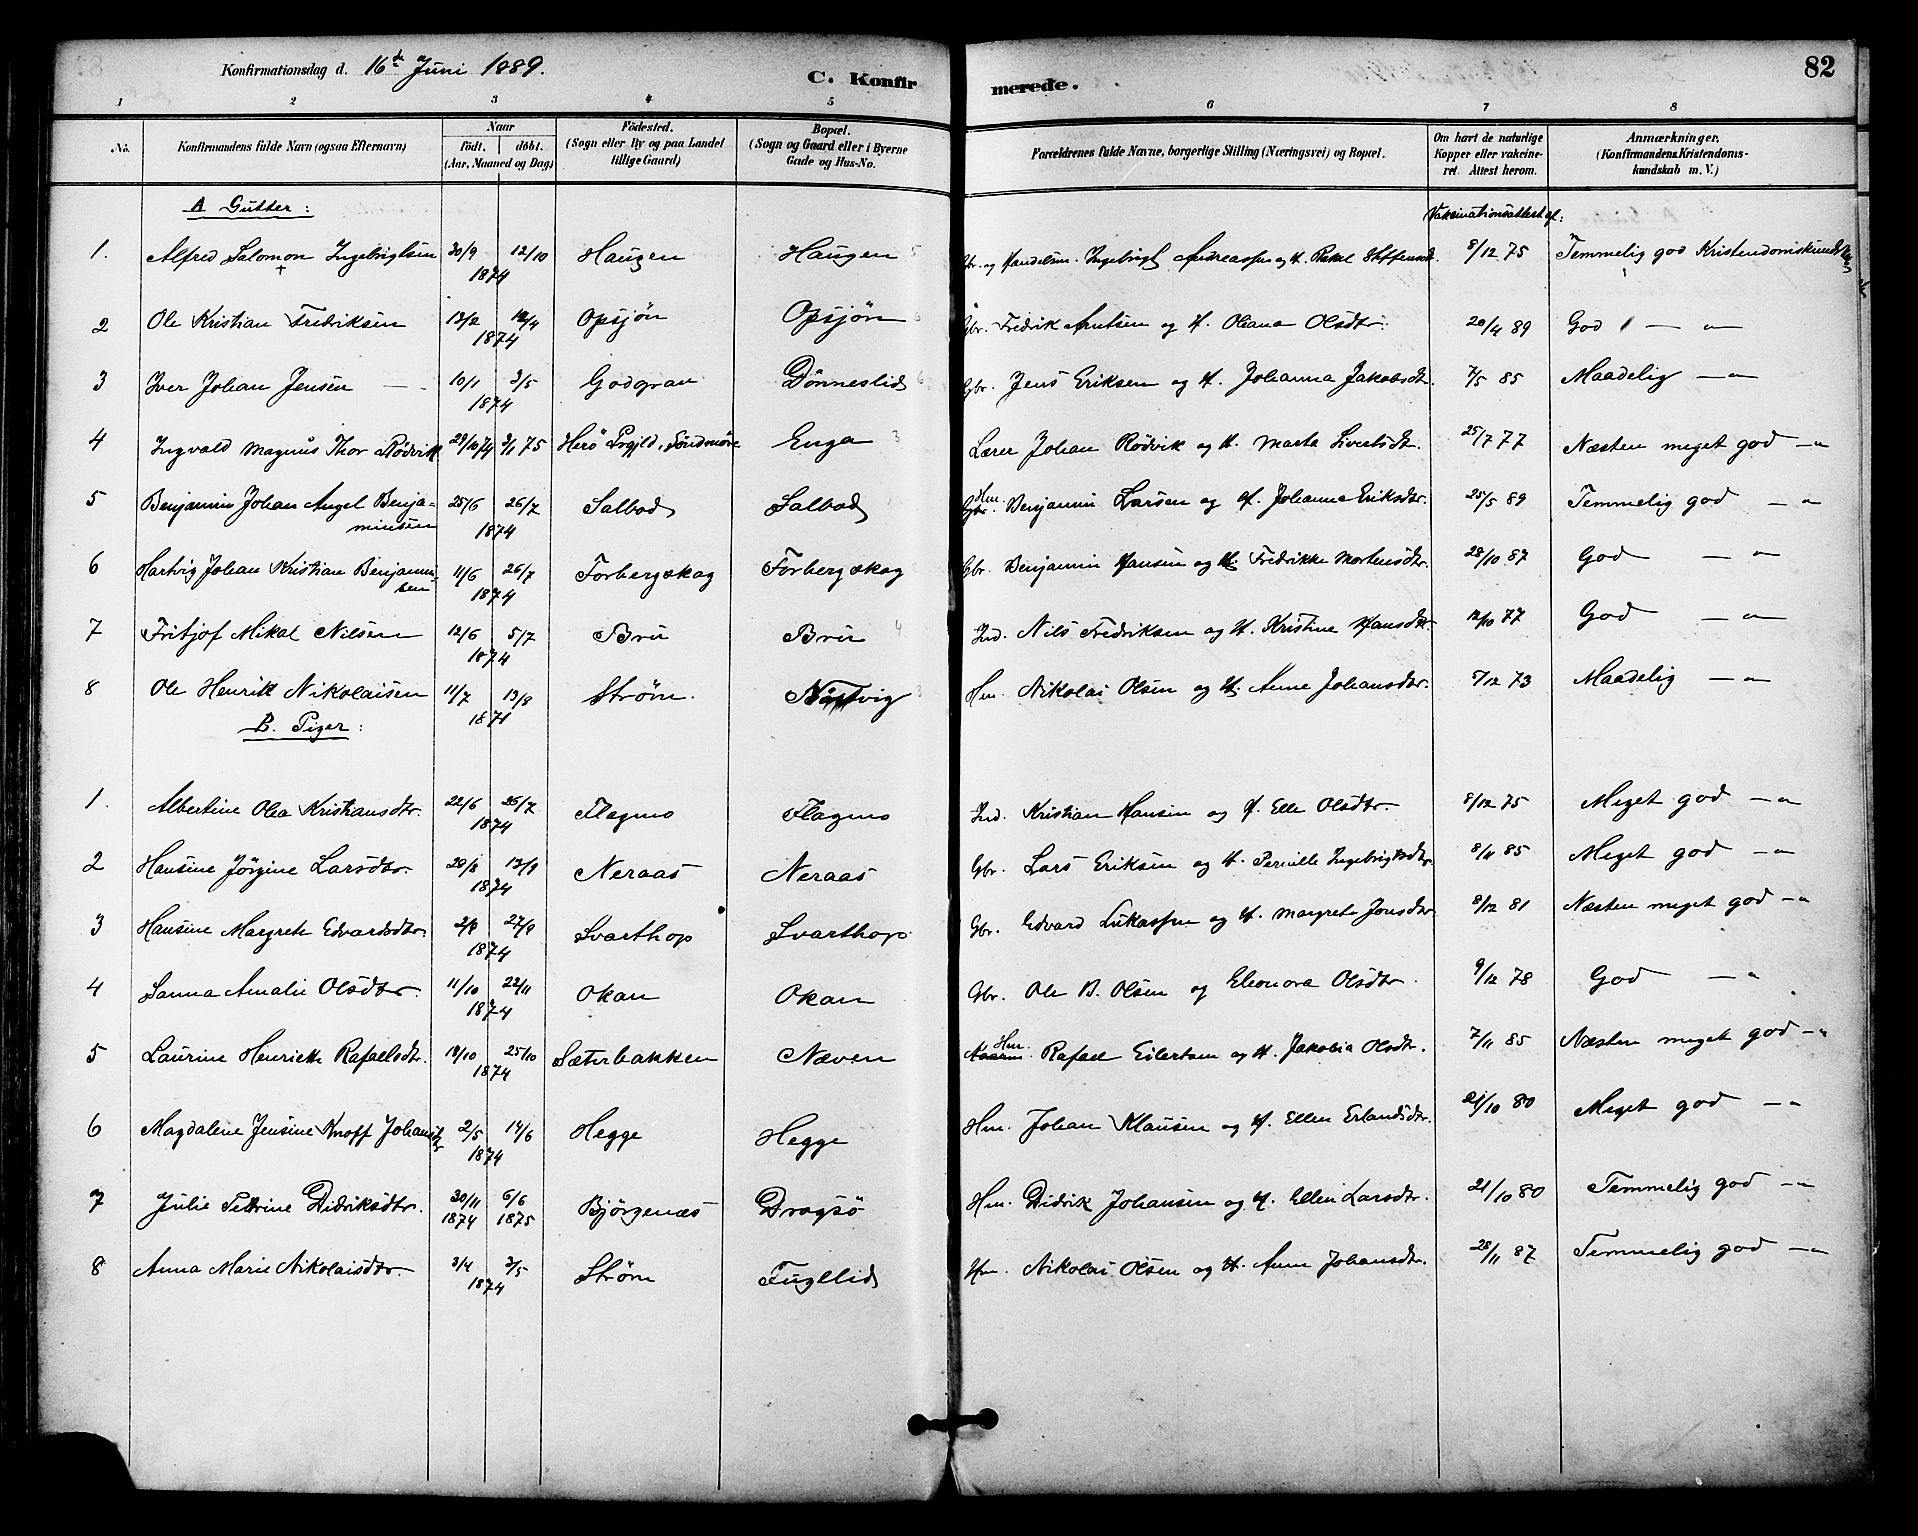 Konfirmationsdag d. 16de Juni 1889.
C. Konfirmerede.
82
1 2 3 4 5 6 7 8
No. Konfirmandens fulde Navn (ogsaa Efternavn) Naar födt. döbt. (Aar, Maaned og Dag) Födested. (Sogn eller By og paa Landet tillige Gaard) Bopæl. (Sogn og Gaard eller i Byerne Gade og Hus-No. Forældrenes fulde Navne, borgerlige Stilling (Næringsvei) og Bopæl. Om havt de naturlige Kopper eller vakcineret. Attest herom. Anmærkninger, (Konfirmandens Kristendomskundskab m. V.)
A Gutter: Vaksinationsattest af:
1. Alfred Salomon Ingebrigtsen 30/9 12/10 1874 Haugen Haugen 5 Gbr. og Handelsm. Ingebrigt Andreassen og H. Rakel Steffensdt. 8/12 75 Temmelig god Kristendomskundskab
2 Ole Kristian Fredriksen 13/2 12/4 1874 Opsjön Opsjön 6 Gbr. Fredrik Arntsen og H. Oliana Olsdtr. 20/4 89 God — „
3 Iver Johan Jensen 10/1 3/5 1874 Godgran Dönneslid 6 Gbr. Jens Eriksen og H. Johanna Jakobsdtr. 7/5 85 Maadelig — „
4 Ingvald Magnus Thor Rödvik 29/10 74 3/1 75 Herö Prgjld, Söndmöre Enga 3 Lærer Johan Rödvik og H. Marta Sivertsdtr. 25/7 77 Næsten meget god — „
5 Benjamin Johan Angel Benjaminsen 25/6 26/7 1874 Salbod Salbod Hm. Gbr. Benjamin Larsen og H. Johanna Eriksdtr. 25/5 89 Temmelig god — „
6 Hartvig Johan Kristian Benjaminsen 11/6 26/7 1874 Forbergskog Forbergskog Gbr. Benjamin Hansen og H. Fredrikke Mortensdtr. 28/10 87 God — „
7 Fritjof Mikal Nilsen 12/6 5/7 1874 Bru Bru 4 Ind. Nils Fredriksen og H. Kristine Hansdtr. 12/10 77 God — „
8 Ole Henrik Nikolaisen 11/7 13/8 1871 Ström. Nästvig 3 Hm. Nikolai Olsen og H. Anne Johansdtr. 7/12 73 Maadelig — „
B. Piger:
1. Albertine Olea Kristiansdtr. 22/6 26/7 1874 Flagmo Flagmo Ind. Kristian Hansen og H. Elle Olsdtr. 8/12 75 Meget god — „
2 Hansine Jörgine Larsdtr. 20/8 13/9 1874 Neraas Neraas Gbr. Lars Eriksen og H. Pernille Ingebrigtsdtr. 8/11 85 Meget god — „
3 Hansine Margrete Edvardsdtr. 2/8 27/9 1874 Svarthop Svarthop Gbr. Edvard Lukassen og H. Margrete Jonsdtr. 8/12 81 Næsten meget god — „
4 Sanna Amalie Olsdtr. 11/10 22/11 1874 Okan Okan Gbr. Ole B. Olsen og Eleonora Olsdtr. 9/12 78 God — „
5 Laurine Henrikke Rafaelsdtr. 14/10 25/10 1874 Sæterbakken Næven Hm. Rafael Eilertsen og H. Jakobia Olsdtr. 7/11 85 Næsten meget god — „
6 Magdalene Jensine Knoff Johansdtr 2/5 14/6 1874 Hegge Hegge Hm. Johan Klausen og H. Ellen Erlandsdtr. 21/10 80 Meget god — „
7 Julie Petrine Didriksdtr. 30/11 1874 6/6 1875 Björgenæs Dragsö Hm. Didrik Johansen og H. Ellen Larsdtr. 21/10 80 Temmelig god — „
8 Anna Marie Nikolaisdtr. 3/4 3/5 1874 Ström Fuglelid Hm. Nikolai Olsen og H. Anne Johansdtr. 28/11 87 Temmelig god — „